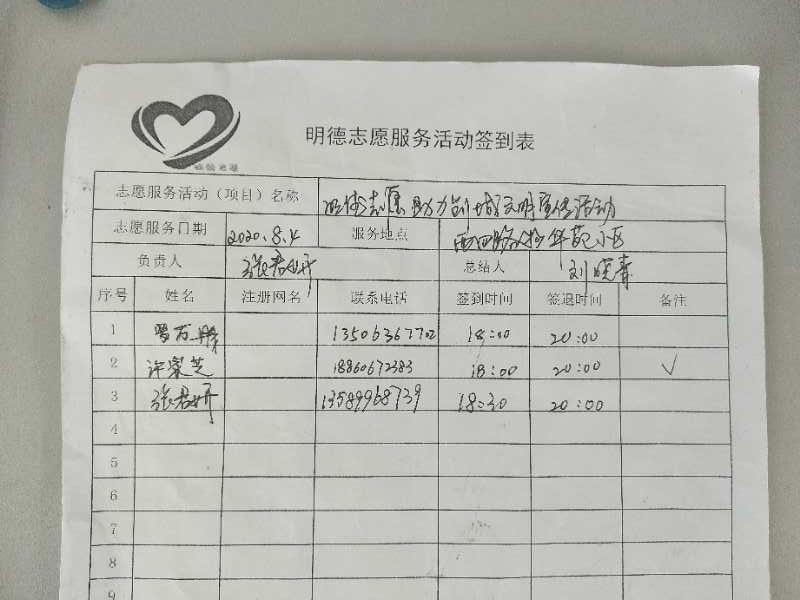 明德志愿服务活动签到表
志愿服务活动（项目）名称 明德志愿助力创城文明宣传活动
志愿服务日期 2020.8.4 服务地点 西四路 华苑小区
负责人 张君妍 总结人 刘晓青
序号 姓名 注册网名 联系电话 签到时间 签退时间 备注
1 13506367702 18:00 20:00
2 许荣芝 18860672383 18:00 20:00 √
3 张君妍 13589968739 18:30 20:00
4
5
6
7
8
9